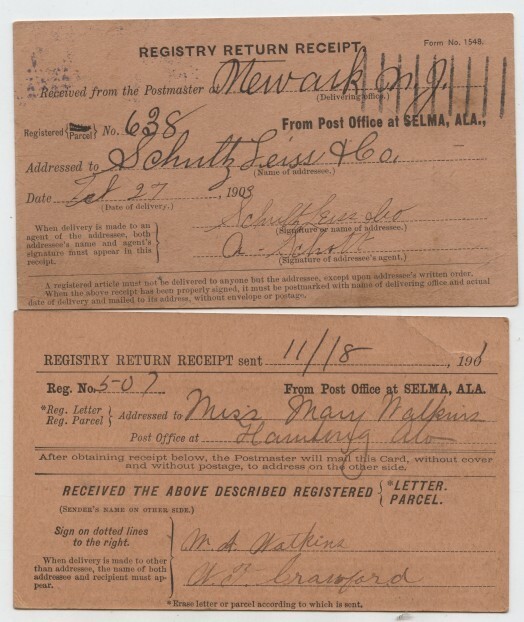 REGISTRY RETURN RECEIPT.
Form No. 1548.
Received from the Postmaster at Newark N. J.
(Delivering office.)
Registered Parcel No. 638 From Post Office at SELMA, ALA.,
Addressed to Schultz Leiss & Co.
(Name of addressee.)
Date Feb 27, 1903
(Date of delivery.)
When delivery is made to an
agent of the addressee, both
addressee's name and agent's
signature must appear in this
receipt.
Schultz Leiss & Co
(Signature or name of addressee.)
A. Schott
(Signature of addressee's agent.)
A registered article must not be delivered to anyone but the addressee, except upon addressee's written order.
When the above receipt has been properly signed, it must be postmarked with name of delivering office and actual
date of delivery and mailed to its address, without envelope or postage.
REGISTRY RETURN RECEIPT sent 11/18, 1901
Reg. No. 507 From Post Office at SELMA, ALA.
*Reg. Letter
Reg. Parcel } Addressed to Miss Mary Watkins
Post Office at Hamburg Ala
After obtaining receipt below, the Postmaster will mail this Card, without cover
and without postage, to address on the other side.
RECEIVED THE ABOVE DESCRIBED REGISTERED { *LETTER.
PARCEL.
(SENDER'S NAME ON OTHER SIDE.)
Sign on dotted lines
to the right.
When delivery is made to other
than addressee, the name of both
addressee and recipient must ap-
pear.
M A Watkins
Crawford
*Erase letter or parcel according to which is sent.